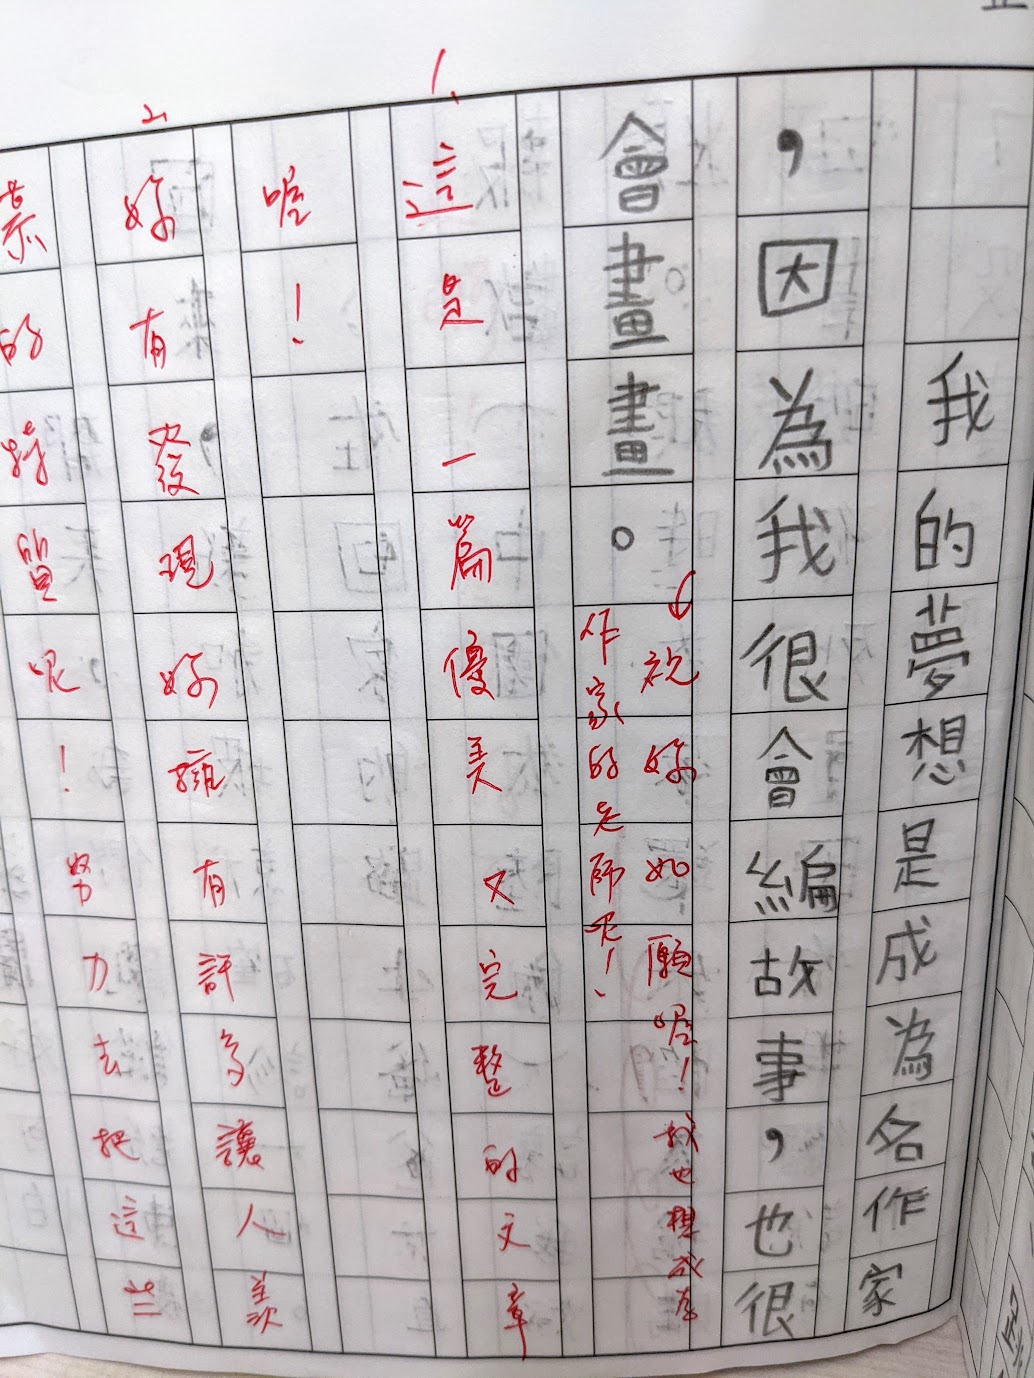 我的夢想是成為名作家
，因為我很會編故事，也很
會畫畫。
祝妳如願喔！我也想成為
作家的老師呢！
1.這是一篇優美又完整的文章
喔！
2.妳有發現妳擁有許多讓人羨
慕的特質呢！努力去把這些